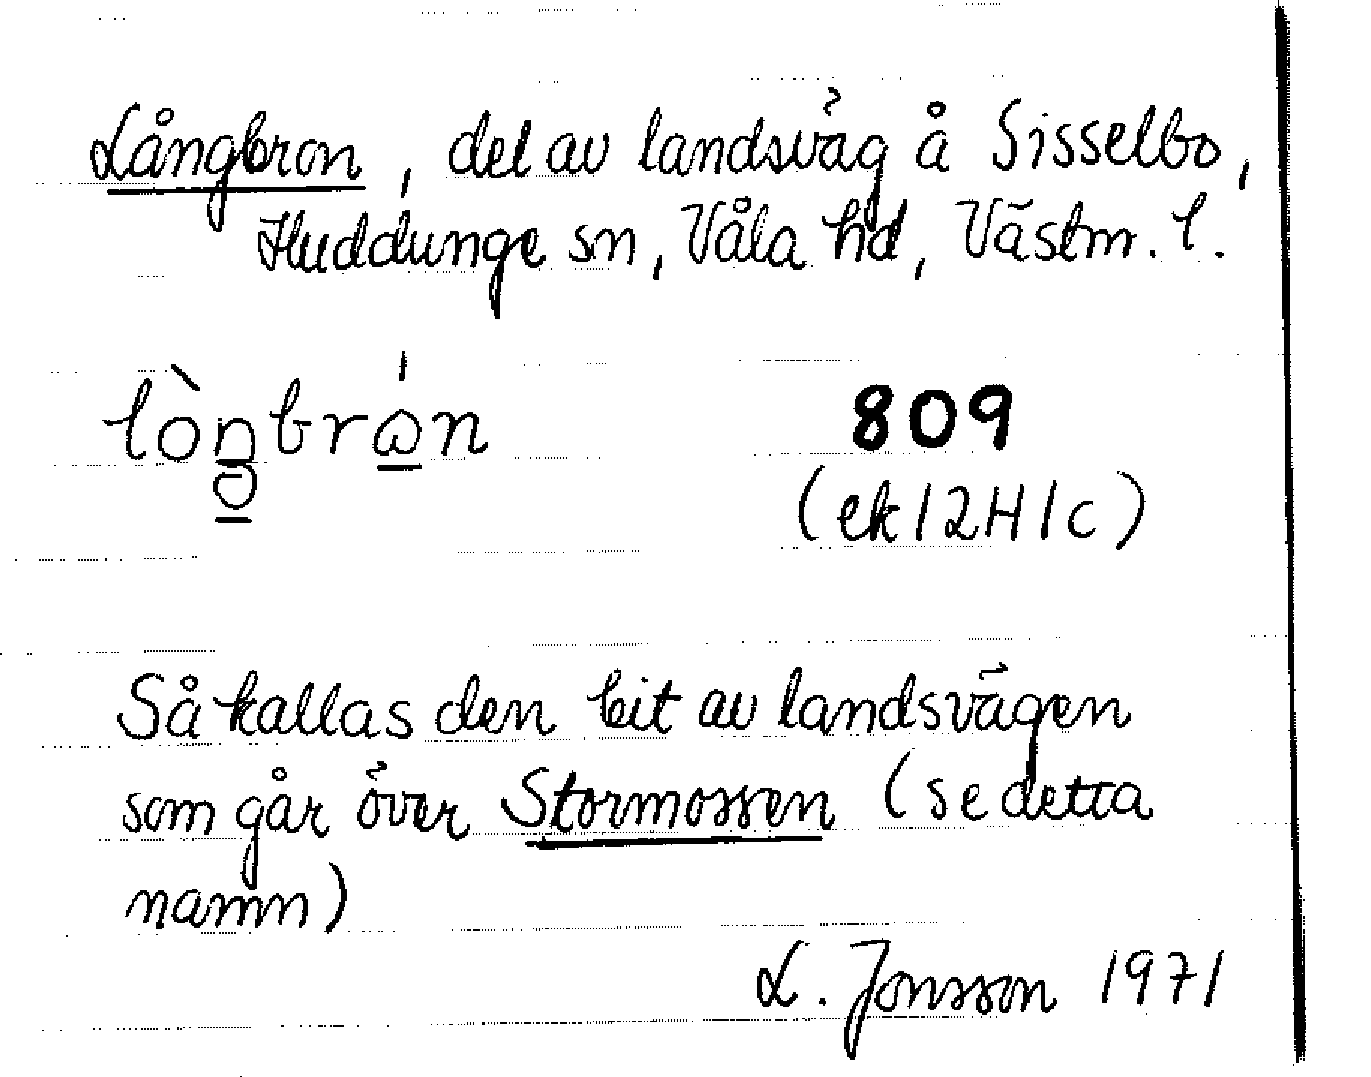 Långbron, del av landsväg å Sisselbo,
Huddunge sn, Våla hd, Västm. l.
809
(ek 12H1c)
Så kallas den bit av landsvägen
som går över Stormossen (se detta
namn)
L. Jonsson 1971